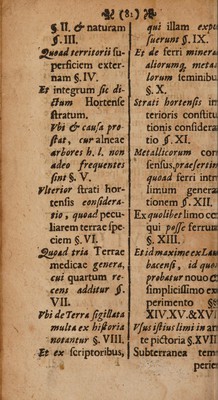 (8.)
§. II. & naturam
§. III.
Quoad territorii su-
perficiem exter-
nam §. IV.
Et integrum sic di-
ctum Hortense
stratum.
Vbi & causa pro-
stat, cur alneae
arbores h. l. non
adeo frequentes
sint §. V.
Vlterior strati hor-
tensis considera-
tio, quoad pecu-
liarem terrae spe-
ciem §. VI.
Quoad tria Terrae
medicae genera,
cui quartum re-
cens additur §.
VII.
Vbi de Terra sigillata
multa ex historia
notantur §. VIII.
Et ex scriptoribus,
qui illam expo-
suerunt §. IX.
Et de ferri minera
aliorumq; metal
lorum seminibus
§. X.
Strati hortensis in
terioris constitu
tionis considera
tio §. XI.
Metallicorum con
sensus, praesertim
quoad ferri intr
limum genera
tionem §. XII.
Ex quolibet limo co
qui posse ferrum
§. XIII.
Et id maxime ex Lau
bacensi, id quod
probatur nouo ex
simplicissimo ex
perimento §§
XIV. XV. & XVI
Vsus istius limi in ar
te pictoria §. XVII
Subterranea tem
perie